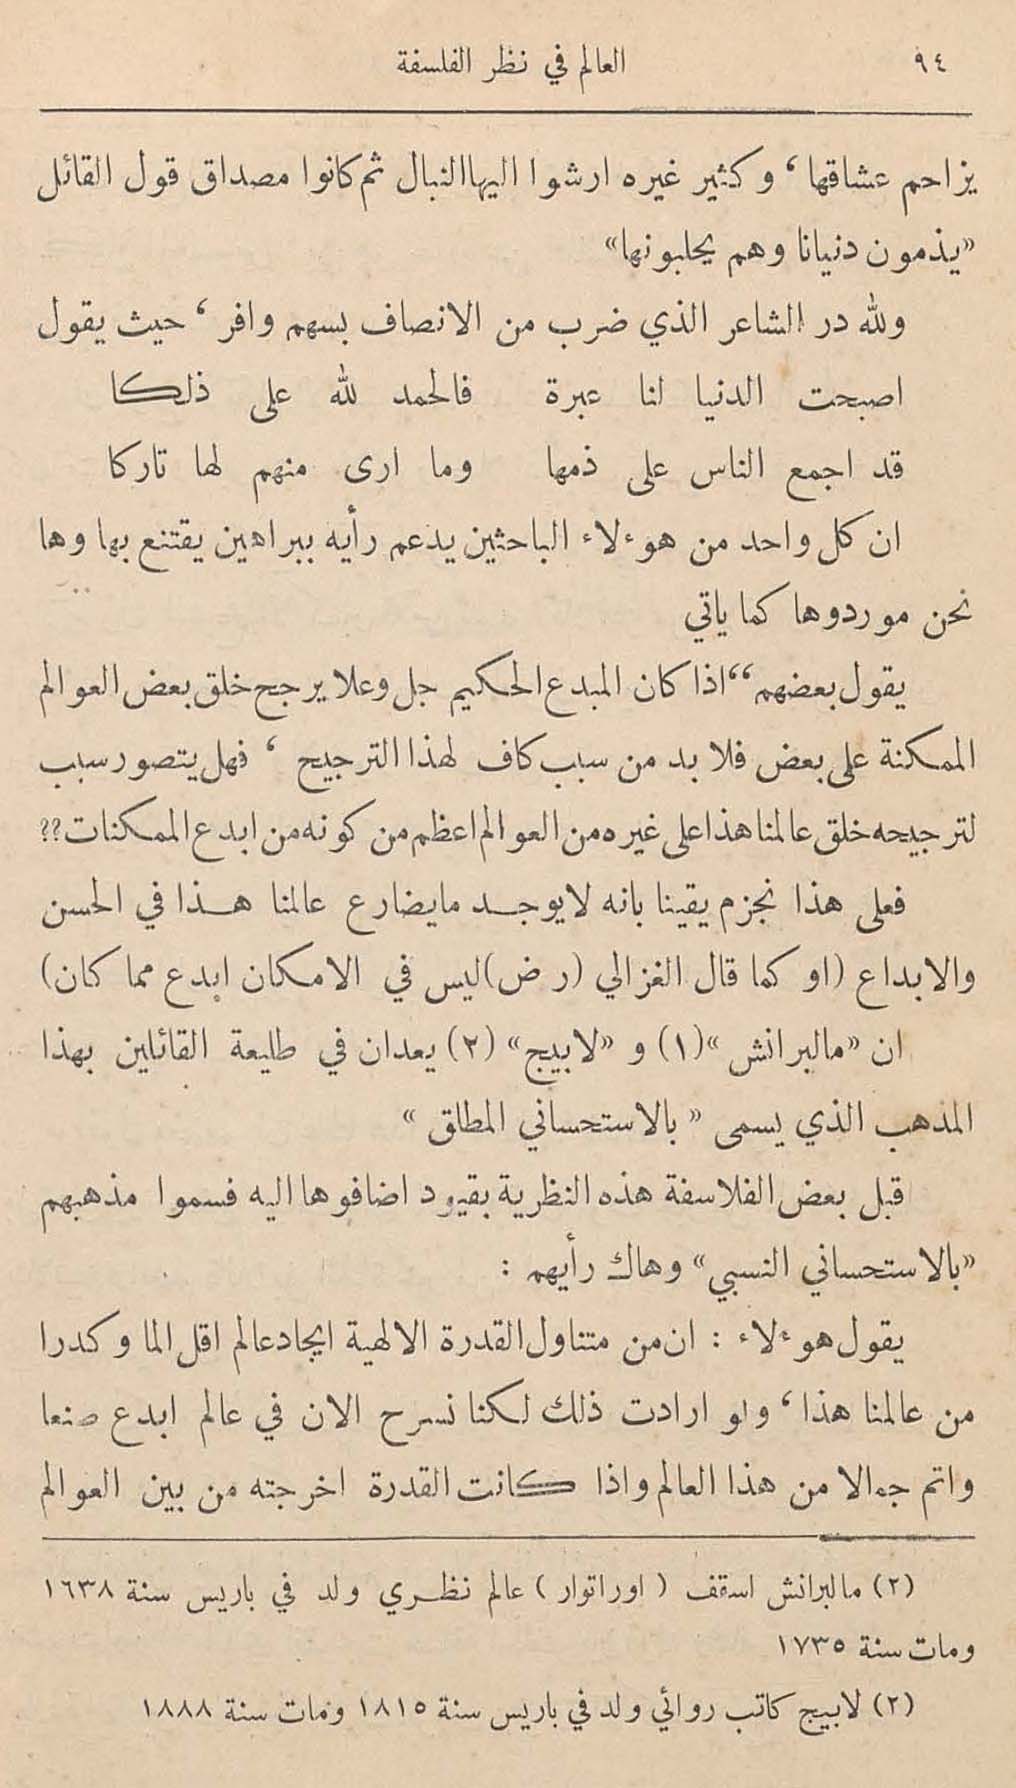 ٩٤
العالم في نظر الفلسفة
يزاحم عشاقها ، وكثير غيره ارشوا اليها النبال ثم كانوا مصداق قول القائل
«يذمون دنيانا وهم يحلبونها»
ولله در الشاعر الذي ضرب من الانصاف بسهم وافر ، حيث يقول
اصبحت الدنيا لنا عبرة فالحمد لله على ذلكا
قد اجمع الناس على ذمها وما ارى منهم لها تاركا
ان كل واحد من هوءلاء الباحثين يدعم رأيه ببراهين يقتنع بها وها
نحن موردوها كما ياتي
يقول بعضهم “اذا كان المبدع الحكيم جل وعلا يرجح خلق بعض العوالم
الممكنة على بعض فلا بد من سبب كاف لهذا الترجيح ، فهل يتصور سبب
لترجيحه خلق عالمنا هذا على غيره من العوالم اعظم من كونه من ابدع الممكنات؟؟
فعلى هذا نجزم يقينا بانه لا يوجد ما يضارع عالمنا هذا في الحسن
والابداع (او كما قال الغزالي (رض) ليس في الامكان ابدع مما كان)
ان «مالبرانش»(١) و «لابيج» (٢) يعدان في طليعة القائلين بهذا
المذهب الذي يسمى « بالاستحساني المطلق »
قبل بعض الفلاسفة هذه النظرية بقيود اضافوها اليه فسموا مذهبهم
«بالاستحساني النسبي» وهاك رأيهم :
يقول هوءلاء : ان من متناول القدرة الالهية ايجاد عالم اقل الما وكدرا
من عالمنا هذا ، ولو ارادت ذلك لكنا نسرح الان في عالم ابدع صنعا
واتم جمالا من هذا العالم واذا كانت القدرة اخرجته من بين العوالم
(٢) مالبرانش اسقف ( اوراتوار ) عالم نظري ولد في باريس سنة ١٦٣٨
ومات سنة ١٧٣٥
(٢) لابيج كاتب روائي ولد في باريس سنة ١٨١٥ ومات سنة ١٨٨٨